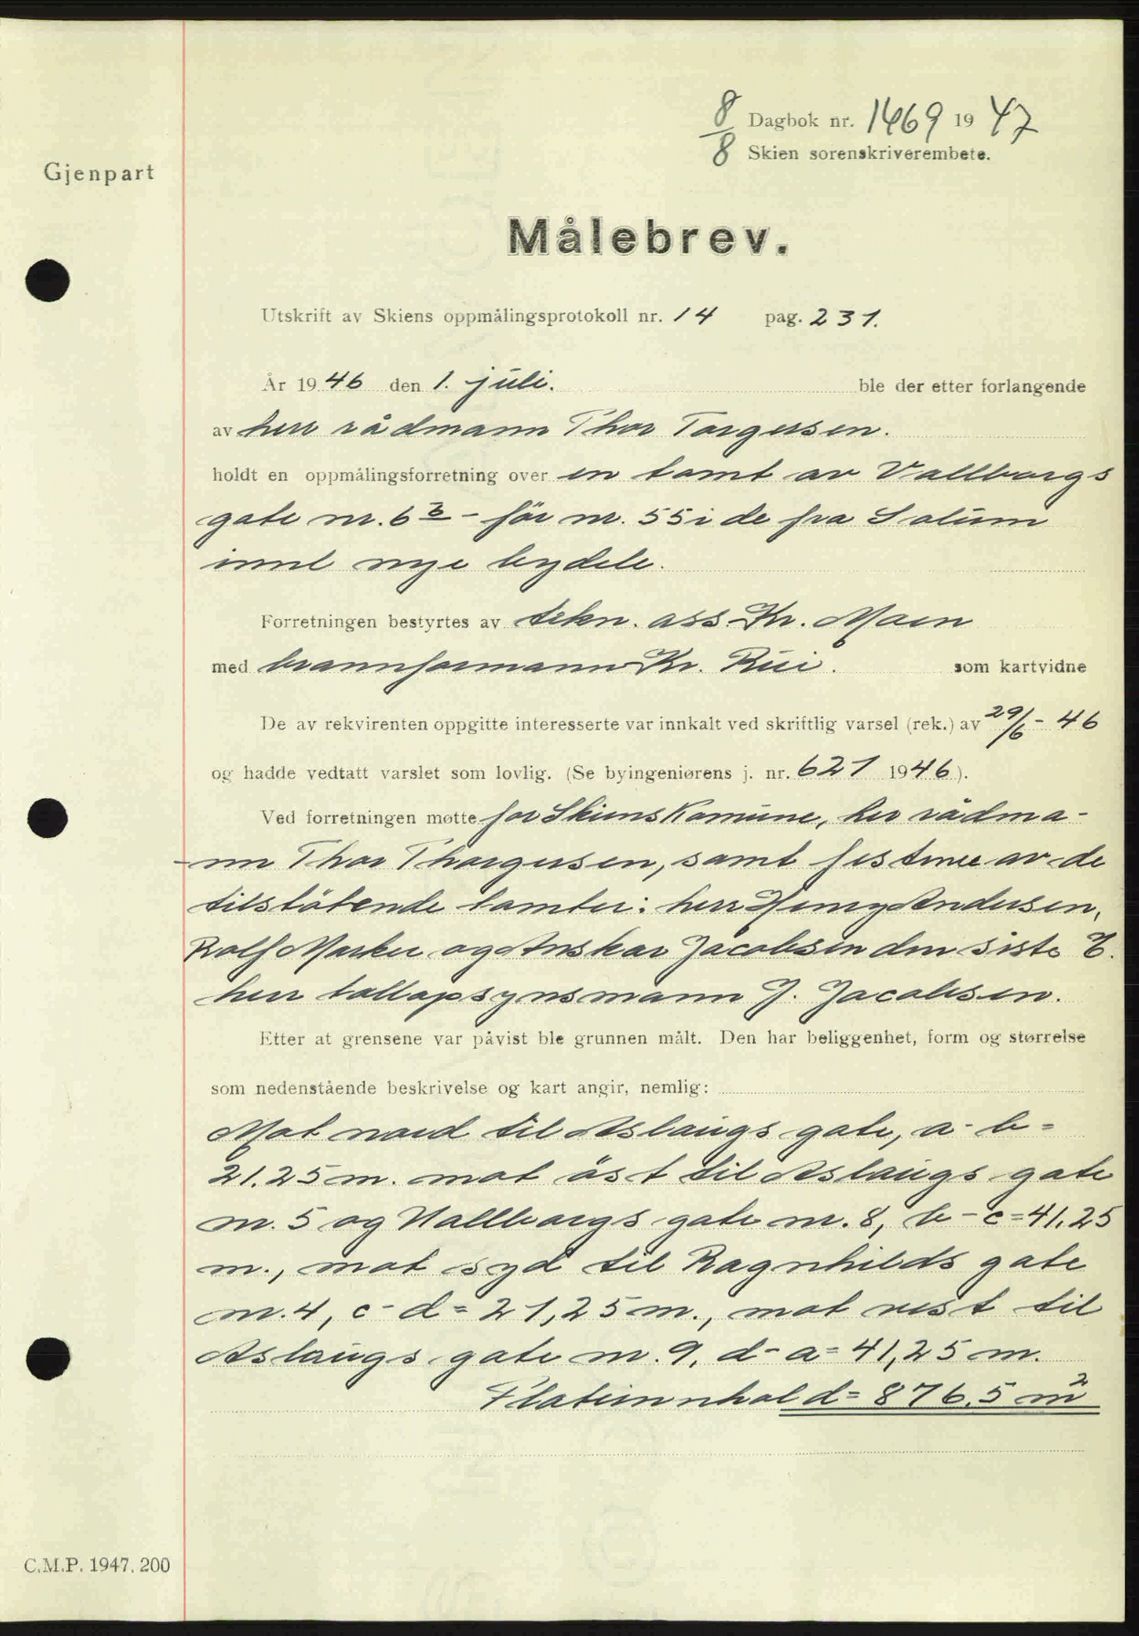 8/8 Dagbok nr. 1469 1947
Skien sorenskriverembete.
Gjenpart
Målebrev.
Utskrift av Skiens oppmålingsprotokoll nr. 14 pag. 231.
År 1946 den 1. juli. ble der etter forlangende
av herr rådmann Thor Torgersen.
holdt en oppmålingsforretning over en tomt av Vallborgs
gate nr. 6 - før nr. 55 i de fra Solum
innl nye bydele.
Forretningen bestyrtes av tekn. ass Kr. Moen
med brannformann Kr. Rui. som kartvidne
De av rekvirenten oppgitte interesserte var innkalt ved skriftlig varsel (rek.) av 29/6 - 46
og hadde vedtatt varslet som lovlig. (Se byingeniørens j. nr. 621 1946).
Ved forretningen møtte for Skiens Komune, her rådma-
-nn Thor Thorgersen, samt festerne av de
tilstøtende tomter: herr Henry Andersen,
Rolf Marker og Anskar Jacobsen den siste E.
herr tollopsynsmann J. Jacobsen.
Etter at grensene var påvist ble grunnen målt. Den har beliggenhet, form og størrelse
som nedenstående beskrivelse og kart angir, nemlig:
Mot nord til Aslaugs gate, a - b =
21.25 m. mot øst til Aslaugs gate
nr. 5 og Vallborgs gate nr. 8, b - c = 41.25
m., mot syd til Ragnhilds gate
nr. 4, c - d = 21,25 m., mot vest til
Aslaugs gate nr. 9, d - a = 41,25 m.
Flateinnhold = 876.5 m²
C.M.P. 1947. 200